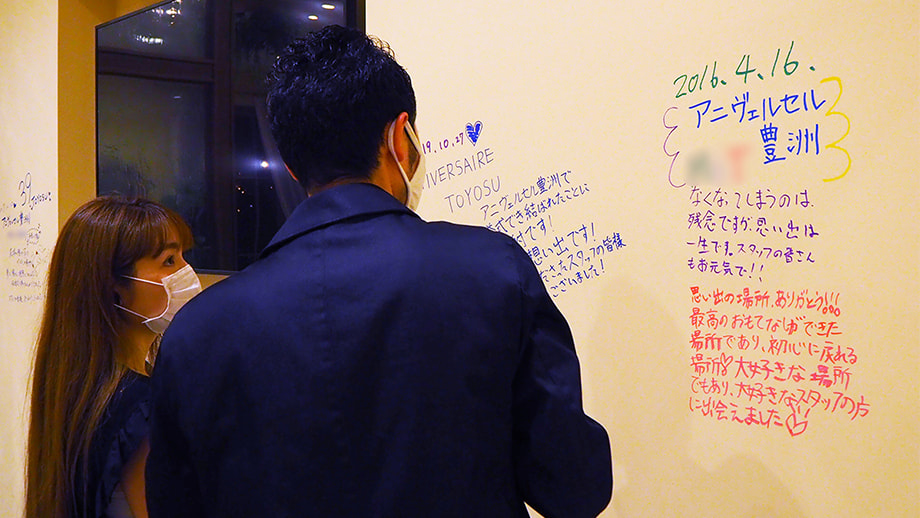 2016.4.16.
アニヴェルセル
豊洲
なくなってしまうのは、
残念ですが、思い出は
一生です。スタッフの皆さん
もお元気で!!
思い出の場所、ありがとう!!!
最高のおもてなしができた
場所であり、初心に戻れる
場所♡大好きな場所
でもあり、大好きなスタッフの方
に出会えました♡
19.10.27
IVERSAIRE
TOYOSU
アニヴェルセル豊洲で
式でき結ばれたことに
です!
思い出です!
さったスタッフの皆様
ございました!
39